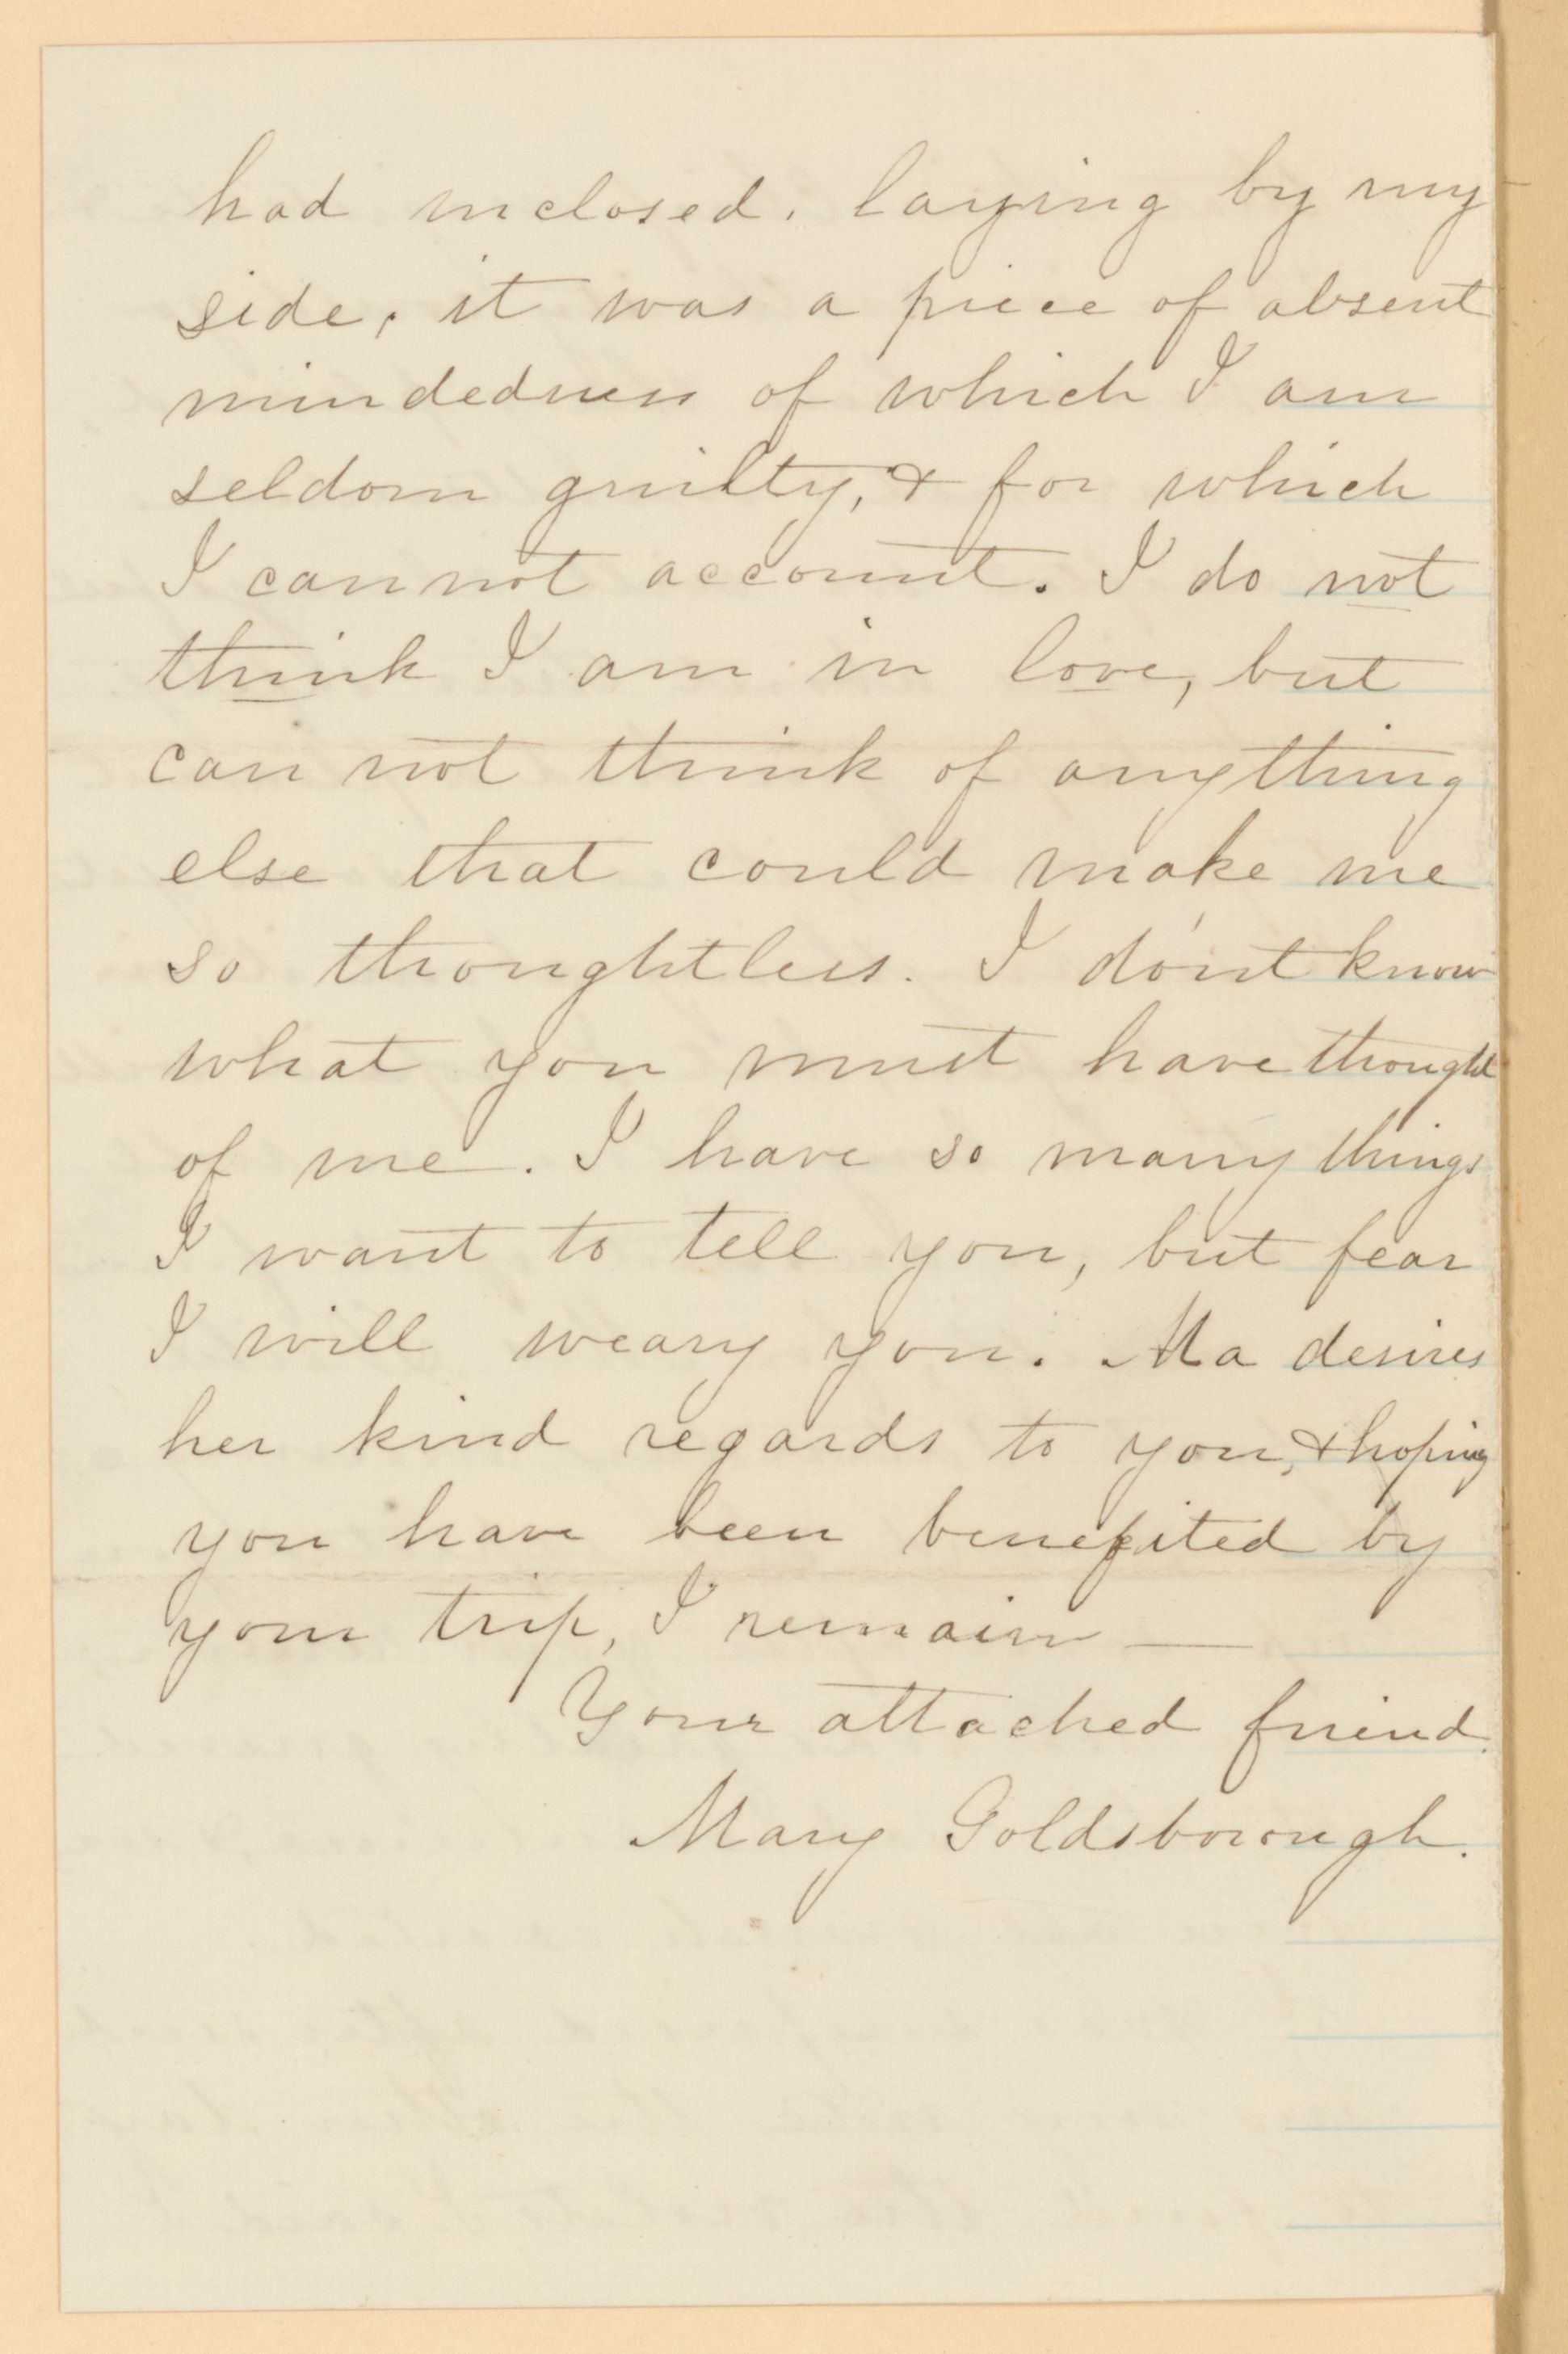 had inclosed, laying by my
side, it was a piece of absent
mindedness of which I am
seldom guilty, & for which
I cannot account. I do not
think I am in love, but
can not think of anything
else that could make me
so thoughtless. I do'nt know
what you must have thought
of me. I have so many things
I want to tell you, but fear
I will weary you. Ma desires
her kind regards to you, & hoping
you have been benefited by
your trip, I remain —
Your attached friend.
Mary Goldsborough.